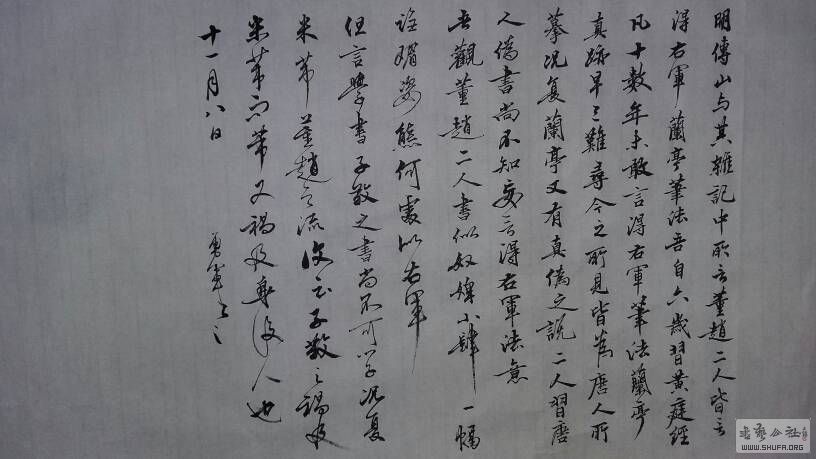 明傅山与其雜記中所言董趙二人皆言
得右軍蘭亭筆法吾自六歲習黃庭經
凡十數年未敢言得右軍筆法蘭亭
真跡早已難尋今之所見皆為唐人所
摹况复蘭亭又有真偽之說二人習唐
人偽書尚不知妄言得右軍法意
吾觀董趙二人書似奴婢小肆一幅
諂媚姿態何處似右軍
但言學書子敬之書尚不可学况复
米芾董趙之流 子敬之禍及
米芾而芾又禍及身後人也
十一月八日
書藝公社
WWW.SHUFA.ORG